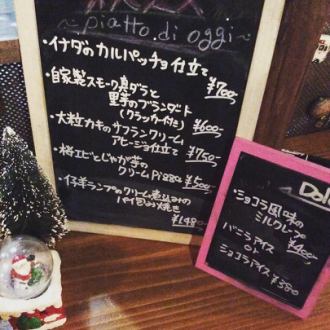 ~piatto di oggi~
・イナダのカルパッチョ仕立て
¥700-
・自家製スモーク真ダラと
里芋のブランダード
(クラッカー付き) ¥600-
・大粒カキのサフランクリーム
アヒージョ仕立て ¥750-
・桜エビとじゃが芋の
クリーム ¥500-
・仔羊ランプのクリーム煮込みの
パイ包み焼き
¥1480-
Dol
・ショコラ風味の
ミルクレープ
¥400-
バニラアイス
or
ショコラアイス ¥380